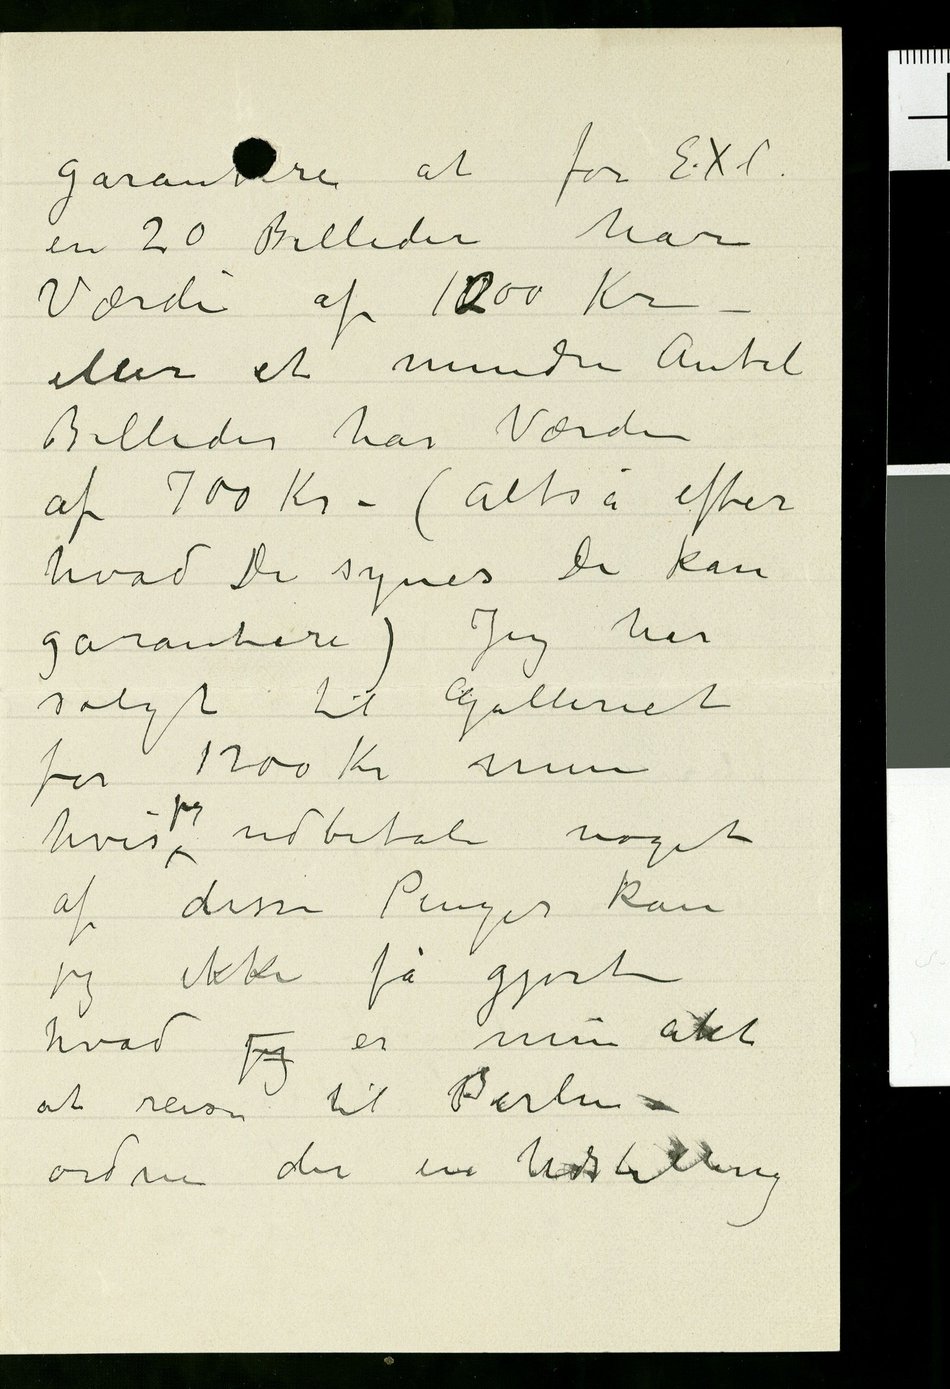 garantere at for E.X.l.
en 20 Billeder har
Værdi af 1200 Kr –
eller et mindre Antal
Billeder har Værdi
af 700 Kr – (altså efter
hvad De synes De kan
garantere) Jeg har
solgt til Galleriet
for 1200 Kr men
hvis jeg udbetale noget
af disse Penger kan
jeg ikke få gjort
hvad jeg er min akt
at reise til Berlin –
ordne der en Udstilling